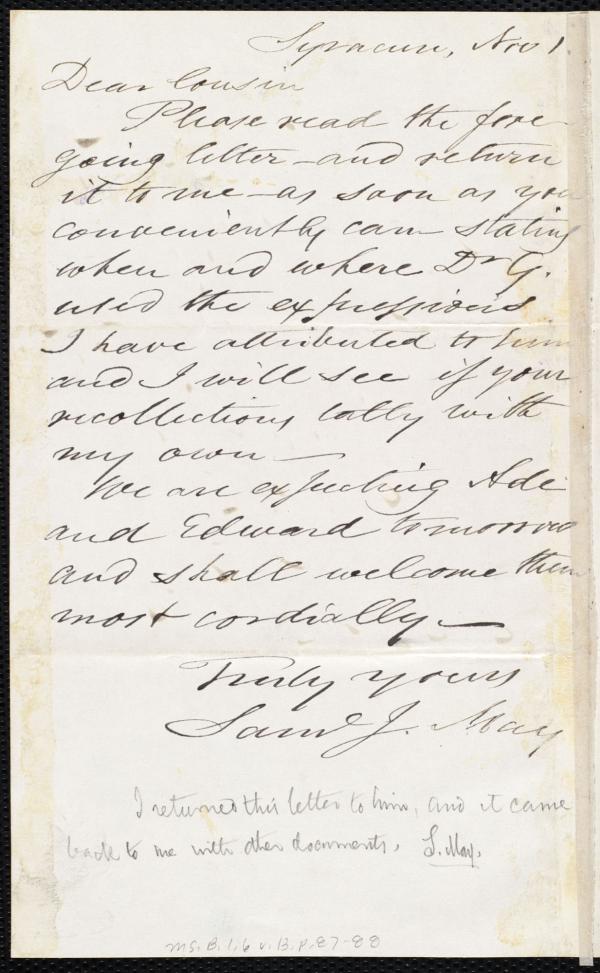 Syracuse, Nov 1.
Dear Cousin
Please read the fore-
going letter—and return
it to me—as soon as you
conveniently can—stating
when and where Dr G.
used the expressions
I have attributed to him
and I will see if your
recollections tally with
my own—
We are expecting Ade
and Edward tomorrow
and shall welcome them
most cordially.—
Truly yours
Saml J. May
I returned this letter to him, and it came
back to me with other documents. S. May.
MS. B. 1. 6 v. 13. p. 87-88